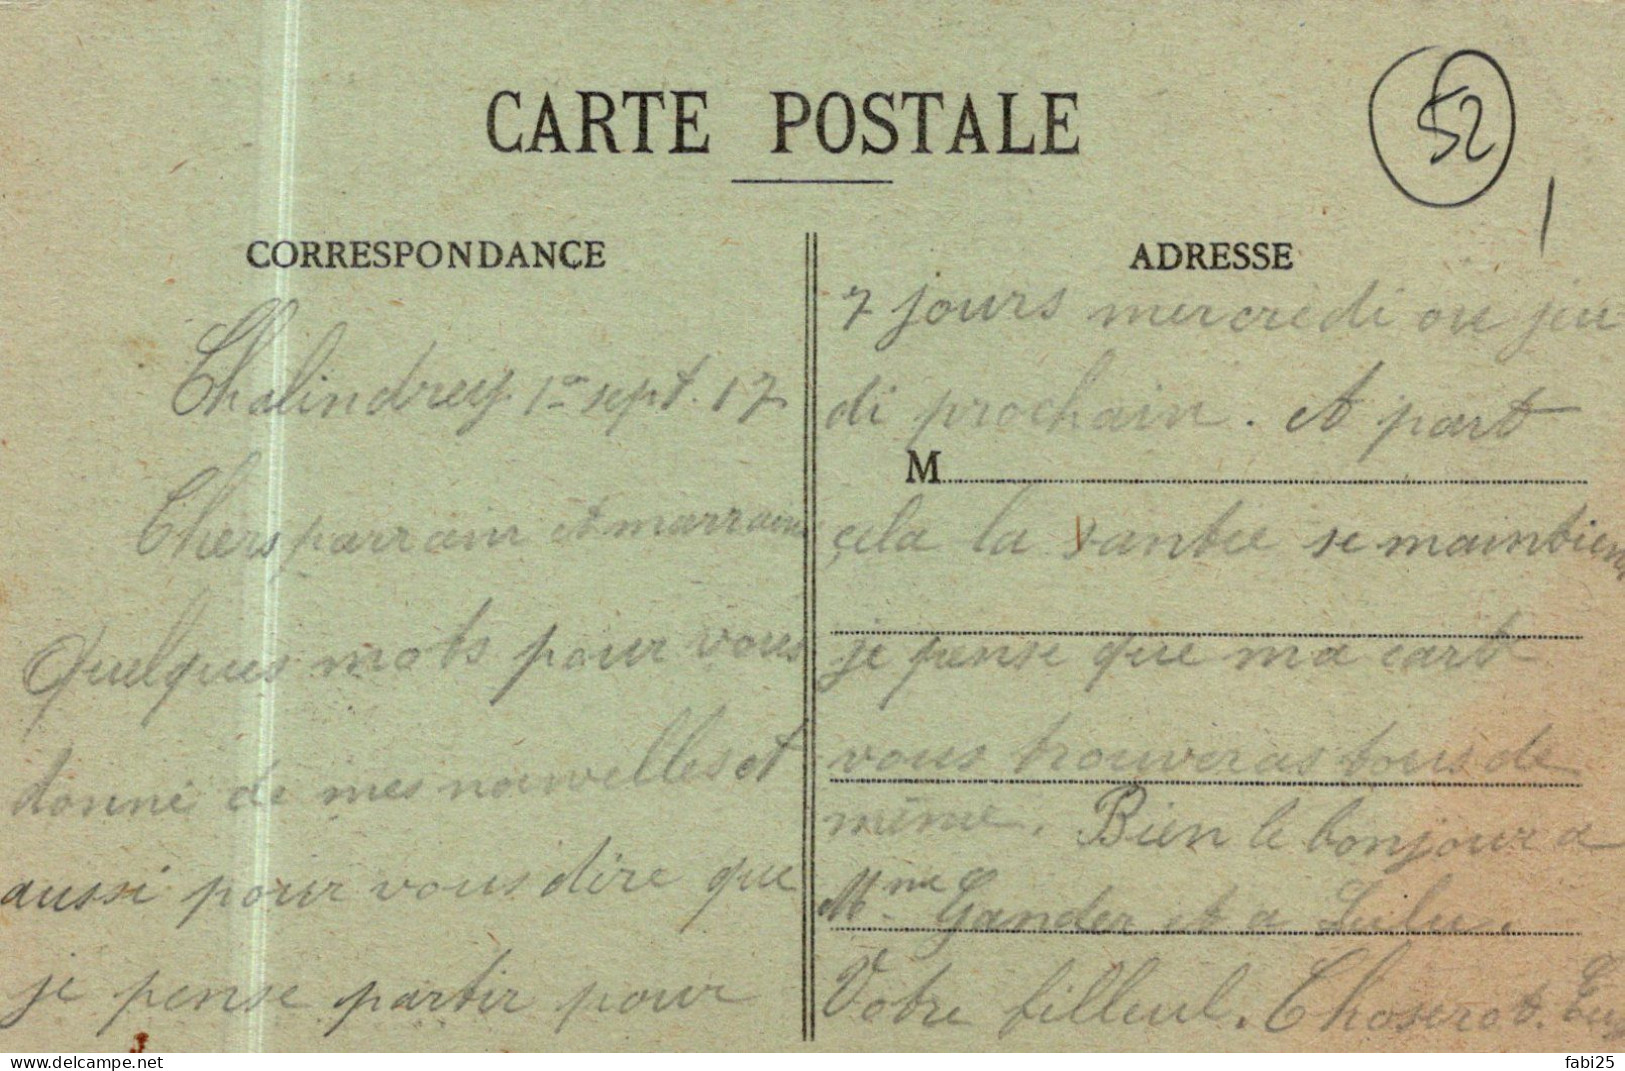 CARTE POSTALE
52
CORRESPONDANCE
Chalindrey 1er sept. 17
Chers parrain et marraine
Quelques mots pour vous
donné de mes nouvelles et
aussi pour vous dire que
je pense partir pour
ADRESSE
7 jours mercredi ou jeu
di prochain. Et part
M
cela la santée se maintien,
je pense que ma cart
vous trouveras tous de
même. Bien le bonjour a
Mme Gander et a Lulu.
Votre filleul.
fabi25